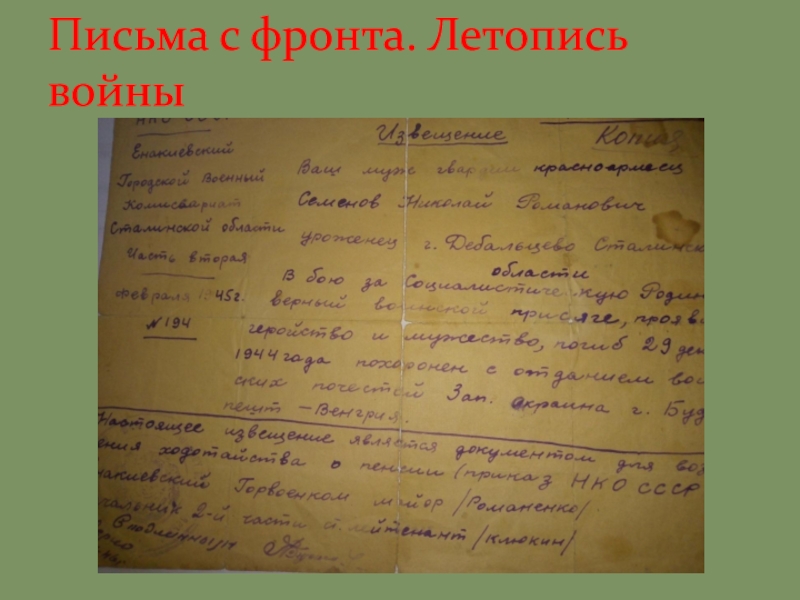 Письма с фронта. Летопись
войны
НКО СССР
Извещение Копия
Енакиевский
Городской Военный
Комисвариат
Сталинской области
Часть вторая
февраля 1945г.
№194
Ваш муж гвардии красноармеец
Семенов Николай Романович
уроженец г. Дебальцево Сталинск
области
В бою за Социалистическую Родин
верный воинской присяге, прояви
геройство и мужество, погиб 29 дек
1944 года похоронен с отданием вои
ских почестей Зап. окраина г. Буд
пешт – Венгрия.
Настоящее извещение является документом для воз
ения ходотайства о пенсии (приказ НКО СССР
накиевский Горвоенком майор /Романенко/
чальник 2-й части л-йтенант /Клюкин/